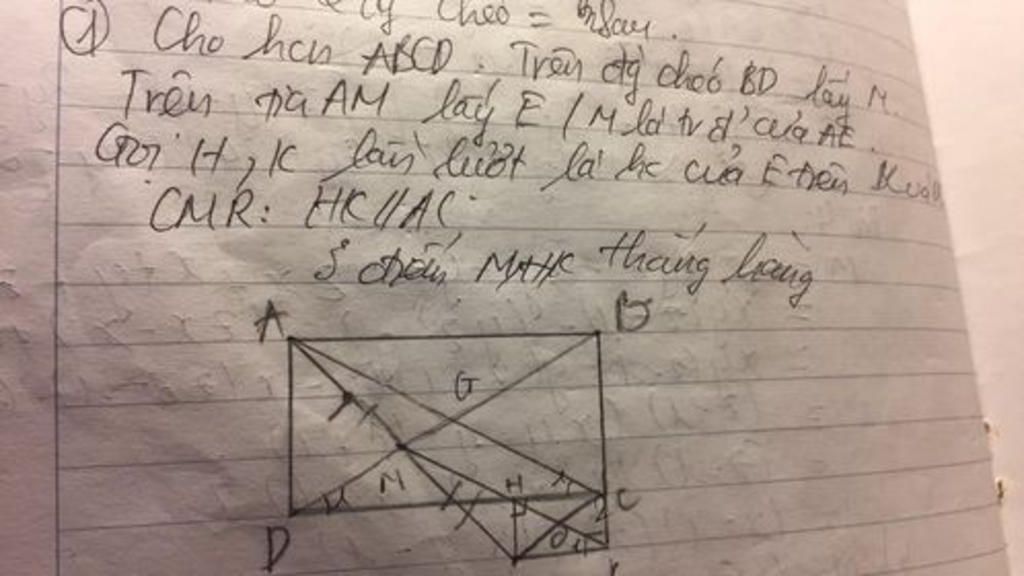 chéo =
① Cho hcn ABCD. Trên đg chéo BD lấy M.
Trên tia AM lấy E / M là tr đ' của AE.
Gọi H, K lần lượt là hc của E trên
CMR: HK//AC
3 điểm M, H, K thẳng hàng
A
B
G
M
H
C
D
O